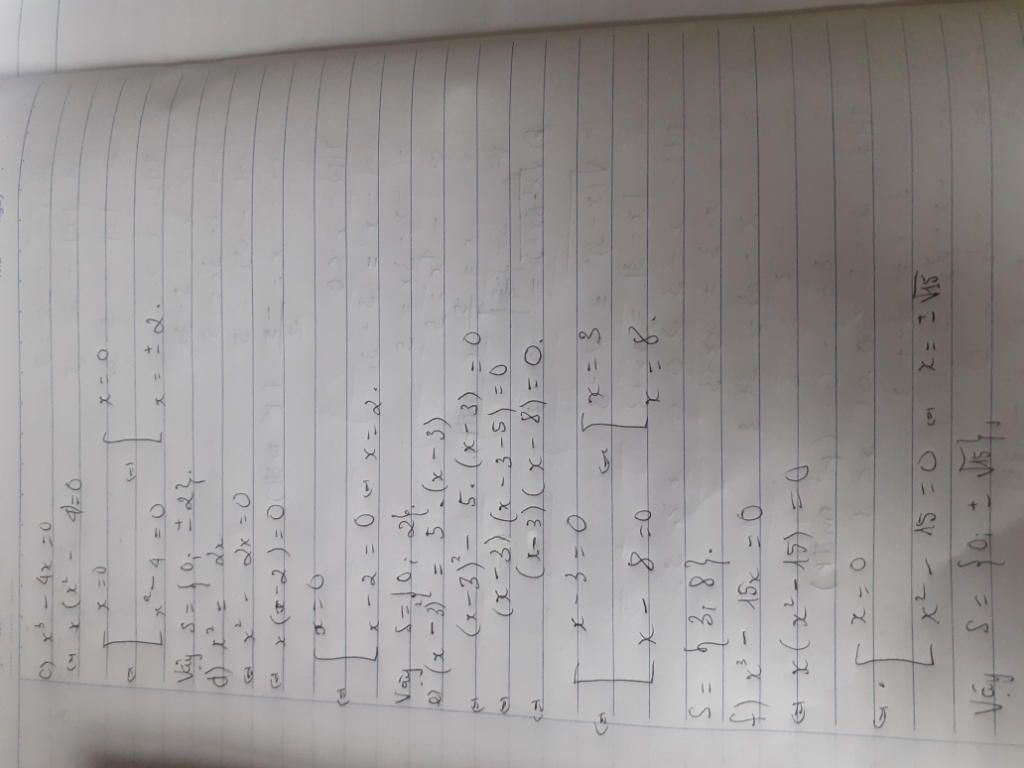 c) x³ - 4x = 0
⇔ x (x² - 4) = 0
⇔ [ x = 0
[ x² - 4 = 0 ⇔ [ x = 0
[ x = ± 2.
Vậy S = { 0; ± 2 }.
d) x² = 2x
⇔ x² - 2x = 0
⇔ x (x - 2) = 0
⇔ [ x = 0
[ x - 2 = 0 ⇔ x = 2.
Vậy S = { 0; 2 }.
e) (x - 3)² = 5 . (x - 3)
⇔ (x - 3)² - 5 . (x - 3) = 0
⇔ (x - 3) (x - 3 - 5) = 0
⇔ (x - 3) (x - 8) = 0.
⇔ [ x - 3 = 0 ⇔ [ x = 3
[ x - 8 = 0 [ x = 8.
S = { 3; 8 }.
f) x³ - 15x = 0
⇔ x (x² - 15) = 0
⇔ . [ x = 0
[ x² - 15 = 0 ⇔ x = ± √15
Vậy S = { 0; ± √15 },